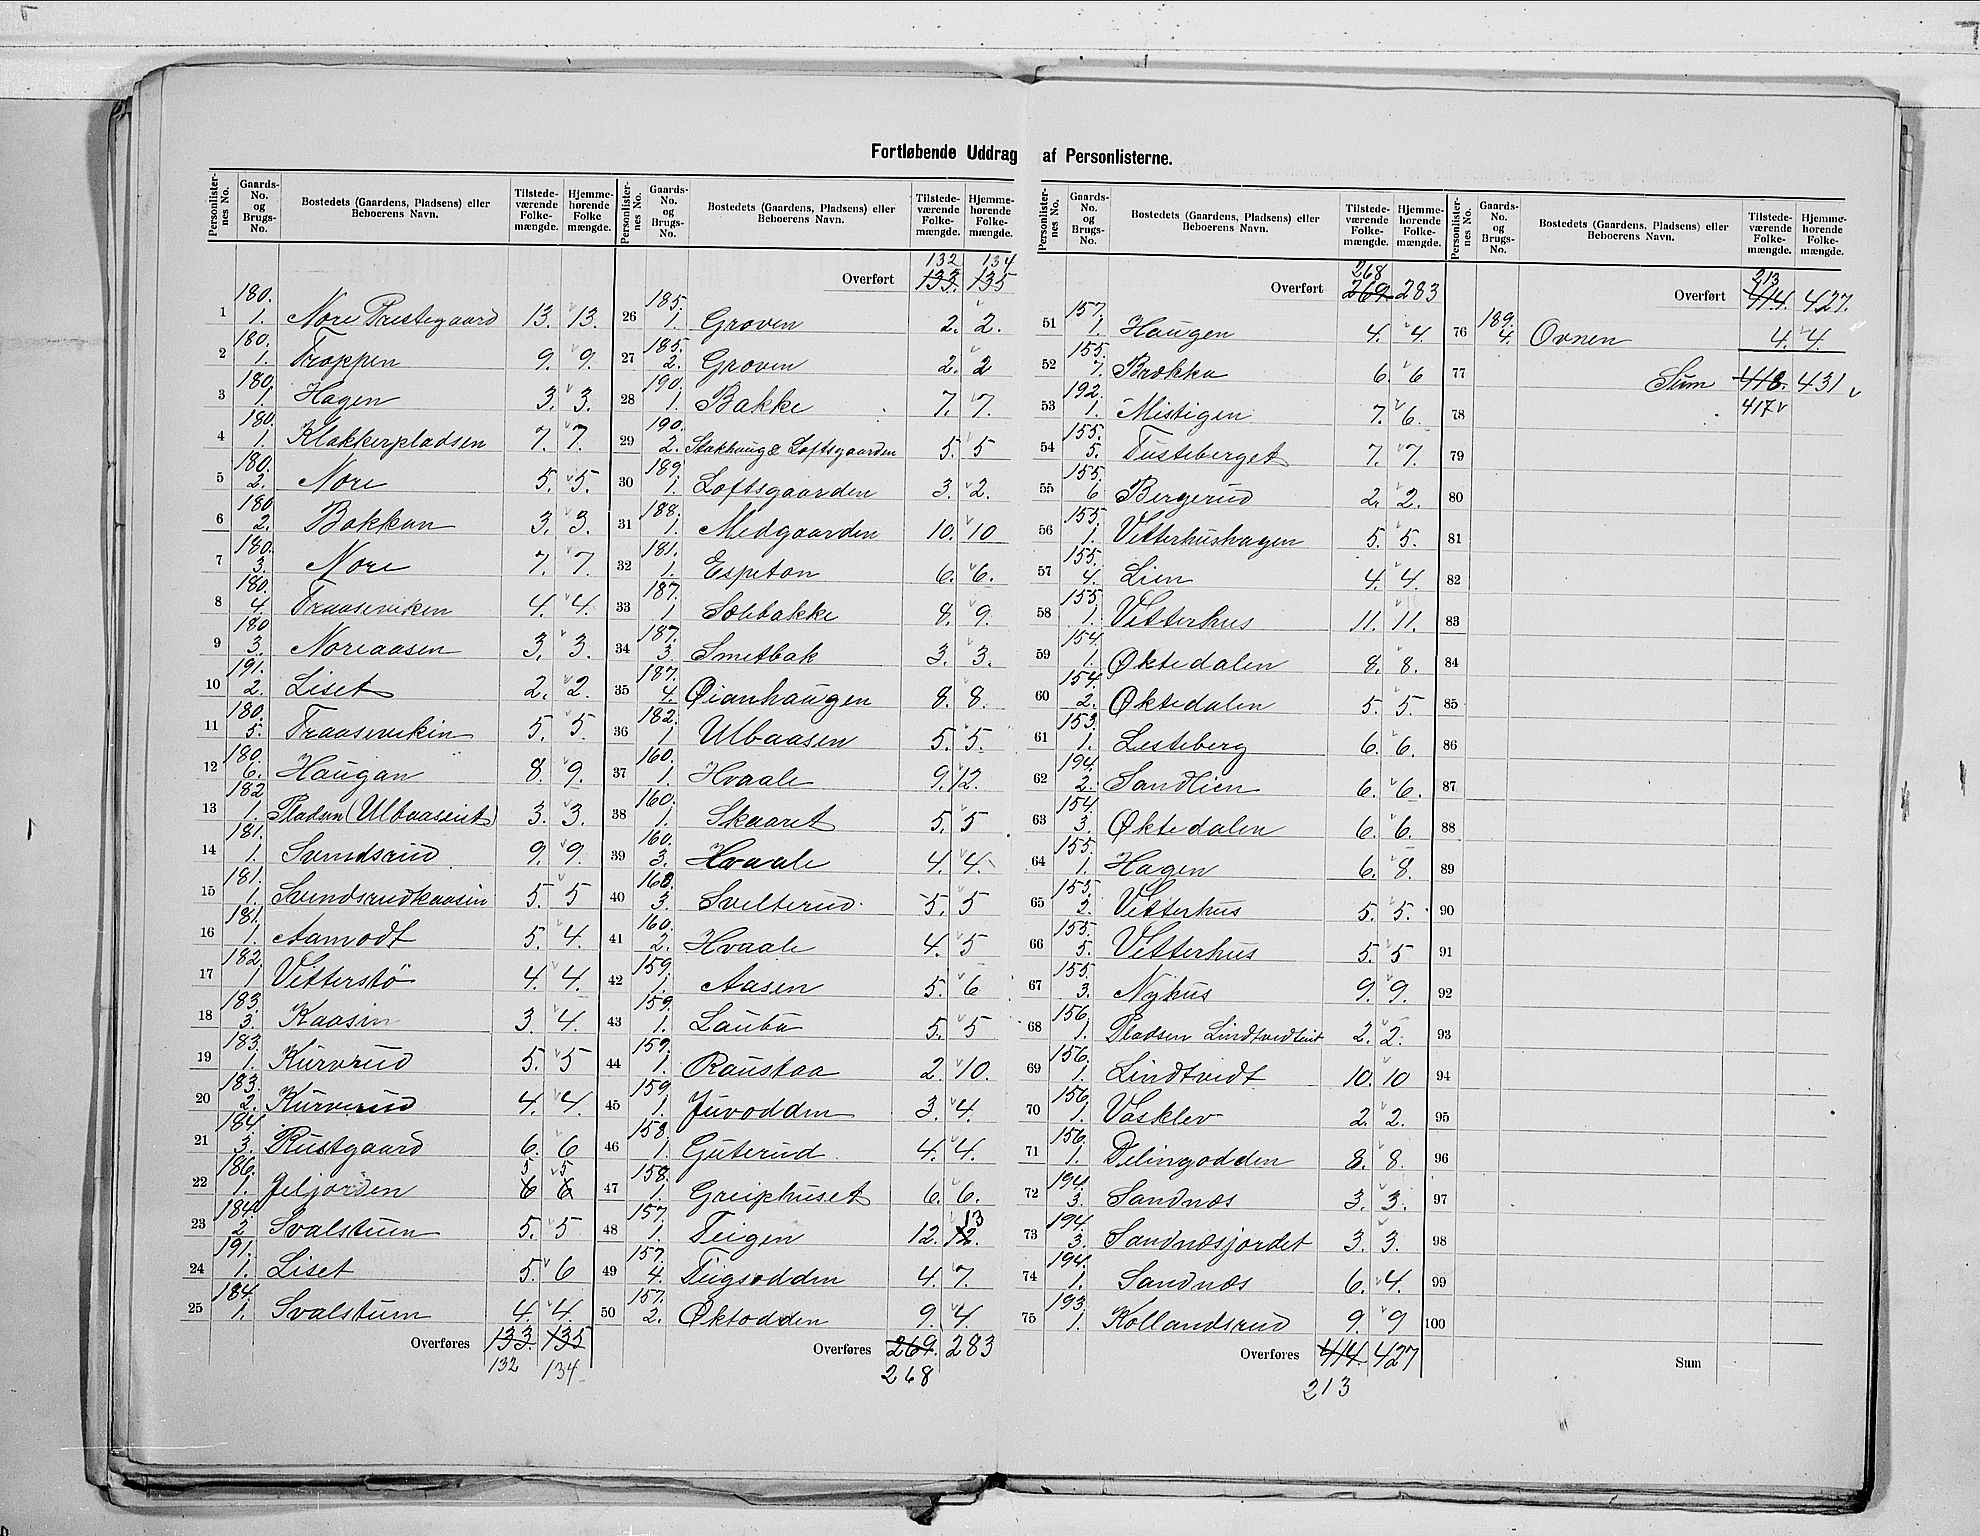 Fortløbende Uddrag af Personlisterne.
Personlister-nes No. Gaards-No. og Brugs-No. Bostedets (Gaardens, Pladsens) eller Beboerens Navn. Tilstede-værende Folke-mængde. Hjemme-hørende Folke mængde.
1 180. 1. Nore Prestegaard 13. 13.
2 180. 1. Troppen 9. 9.
3 180. 1. Hagen 3. 3.
4 180. 1. Klakkerpladsen 7. 7.
5 180. 2. Nore 5. 5.
6 180 2. Bakkan 3. 3.
7 180. 3. Nore 7. 7.
8 180. 4. Traaseviken 4. 4.
9 180 3. Noreaasen 3. 3.
10 191. 2. Liset 2. 2.
11 180. 5. Traasevikin 5. 5.
12 180. 6. Haugan 8. 9.
13 182 1. Pladsen (Ulbaaseiet) 3. 3.
14 181. 1. Svendsrud 9. 9.
15 181. 1. Svendsrudkaasin 5. 5
16 181. 1. Aamodt 5. 4.
17 182. 1 Vetterstö 4. 4.
18 183. 3. Kaasin 3. 4.
19 183. 1. Kurvrud 5. 5
20 183. 2. Kurverud 4. 4.
21 184 3. Rustgaard 6. 6
22 186. 1. Jeljorden 6 6 5 5
23 184. 2 Svalstuen 5. 5
24 191. 1. Liset 5. 6
25 184. 1. Svalstuen 4. 4.
Overføres 133. 135
132 134
Personlister-nes No. Gaards-No. og Brugs-No. Bostedets (Gaardens, Pladsens) eller Beboerens Navn. Tilstede-værende Folke-mængde. Hjemme-hørende Folke-mængde.
132 134
Overført 133. 135
26 185. 1. Groven 2. 2.
27 185. 2. Groven 2. 2
28 190. 1. Bakke 7. 7.
29 190. 2. Stakhaug & Loftsgaarden 5. 5
30 189. 1. Loftsgaarden 3. 2.
31 188. 1. Medgaarden 10. 10
32 181. 1. Espeton 6. 6.
33 187. 1 Solibakke 8. 9.
34 187. 3 Smetbak 3. 3.
35 187. 4. Øianhaugen 8. 8.
36 182. 1 Ulbaasen 5. 5.
37 160. 1. Hvaale 9. 12.
38 160. 1. Skaaret 5. 5
39 160. 3. Hvaale 4. 4
40 160. 3. Svelterud 5. 5
41 160. 2. Hvaale 4. 5
42 159. 1. Aasen 5. 6
43 159. 1. Lauba 5. 5
44 159. 1. Raustaa 2. 10.
45 159 1. Juvodden 3. 4.
46 158. 1. Guterud 4. 4.
47 158. 1. Greiphuset 6. 6.
48 157. 1. Teigen 12. 12. 13
49 157. 4. Teigsodden 4. 7.
50 157. 2. Øktodden 9. 4.
Overføres 269. 283
268
Personlister-nes No. Gaards-No. og Brugs-No. Bostedets (Gaardens, Pladsens) eller Beboerens Navn. Tilstede-værende Folke-mængde. Hjemme-hørende Folke-mængde.
268
Overført 269 283
51 157. 1. Haugen 4. 4.
52 155. 7. Brøkka 6. 6
53 192. 1. Mistigen 7. 6.
54 155. 5. Tusteberget 7. 7.
55 155. 6 Bergerud 2. 2.
56 155. 1. Vetterhushagen 5. 5.
57 155. 4. Lien 4. 4
58 155. 1. Vetterhus 11. 11.
59 154 1. Øktedalen 8. 8.
60 154. 2. Øktedalen 5. 5.
61 153. 1. Lesteberg 6. 6.
62 194. 2. Sandlien 6. 6.
63 154. 3. Øktedalen 6. 6.
64 155. 1. Hagen 6. 8.
65 155. 2. Vetterhus 5. 5.
66 155. 5. Vetterhus 5. 5
67 155. 3. Nyhus 9. 9.
68 156. 1. Pladsen Lindtvedteiet 2. 2.
69 156. 1. Lindtvedt 10. 10
70 156. 1. Vasklev 2. 2.
71 156. 1. Delingodden 8. 8.
72 194. 3. Sandnæs 3. 3.
73 194. 3. Sandnæsjordet 3. 3.
74 194. 1. Sandnæs 6. 4.
75 193. 1. Kollandsrud 9. 9
Overføres 414. 427
213
Personlister-nes No. Gaards-No. og Brugs-No. Bostedets (Gaardens, Pladsens) eller Beboerens Navn. Tilstede-værende Folke-mængde. Hjemme-hørende Folke-mængde.
213
Overført 414. 427.
76 189. 4. Ovnen 4. 4.
77 Sum 418. 431
78 417
79
80
81
82
83
84
85
86
87
88
89
90
91
92
93
94
95
96
97
98
99
100
Sum